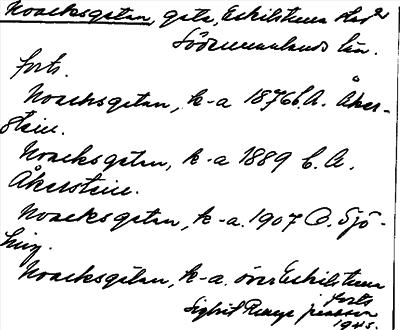 Noacksgatan, gata, Eskilstuna
Södermanlands län.
forts.
Noacksgatan, k-a 1876 C.A. Åker-
stein.
Noacksgatan, k-a 1889 C.A.
Åkerstein.
Noacksgatan, k-a. 1907 O. Sjö-
ling.
Noacksgatan, k-a. över Eskilstuna
forts
Sigbrit
1945.